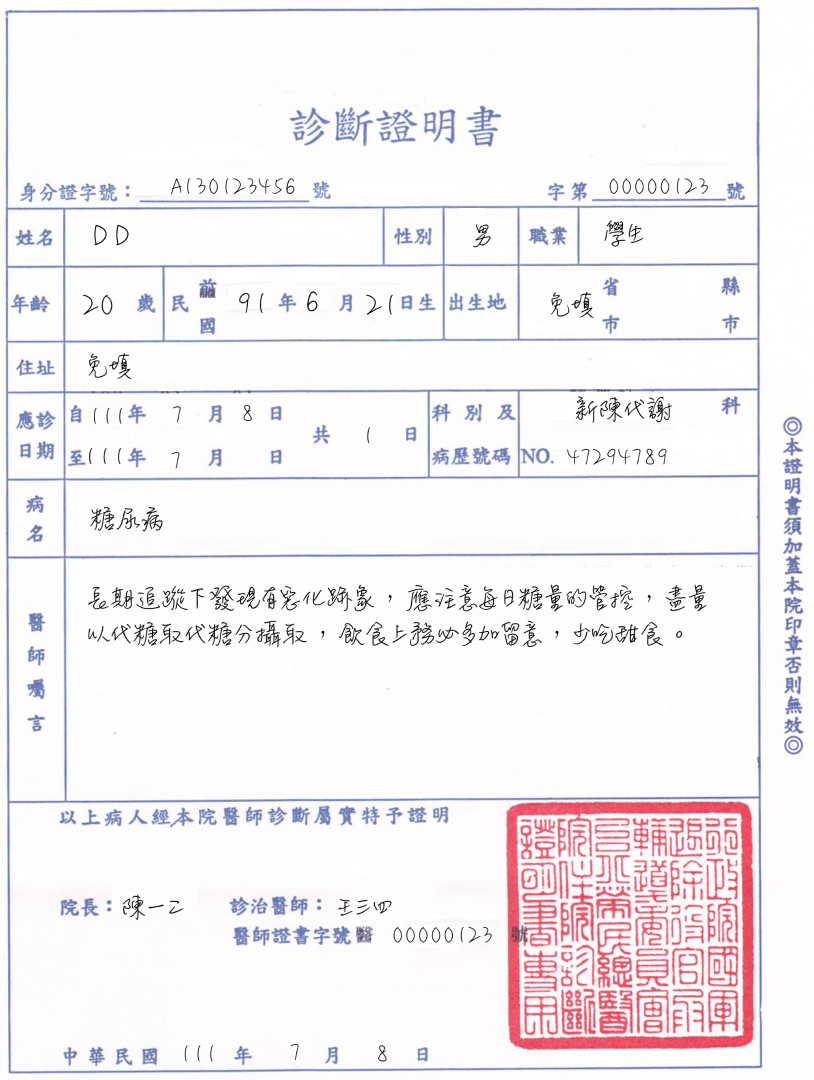 診斷證明書
身分證字號： A130123456 號 字第 00000123 號
姓名 DD 性別 男 職業 學生
年齡 20 歲 民前國 91 年 6 月 21 日生 出生地 免填 省市 縣市
住址 免填
應診日期 自 111 年 7 月 8 日 共 1 日 科別及病歷號碼 新陳代謝 科
至 111 年 7 月 日 NO. 47294789
病名 糖尿病
醫師囑言
長期追蹤下發現有惡化跡象，應注意每日糖量的管控，盡量
以代糖取代糖分攝取，飲食上務必多加留意，少吃甜食。
以上病人經本院醫師診斷屬實特予證明
院長：陳一二 診治醫師：王三四
醫師證書字號 醫 00000123 號
中華民國 111 年 7 月 8 日
◎本證明書須加蓋本院印章否則無效◎